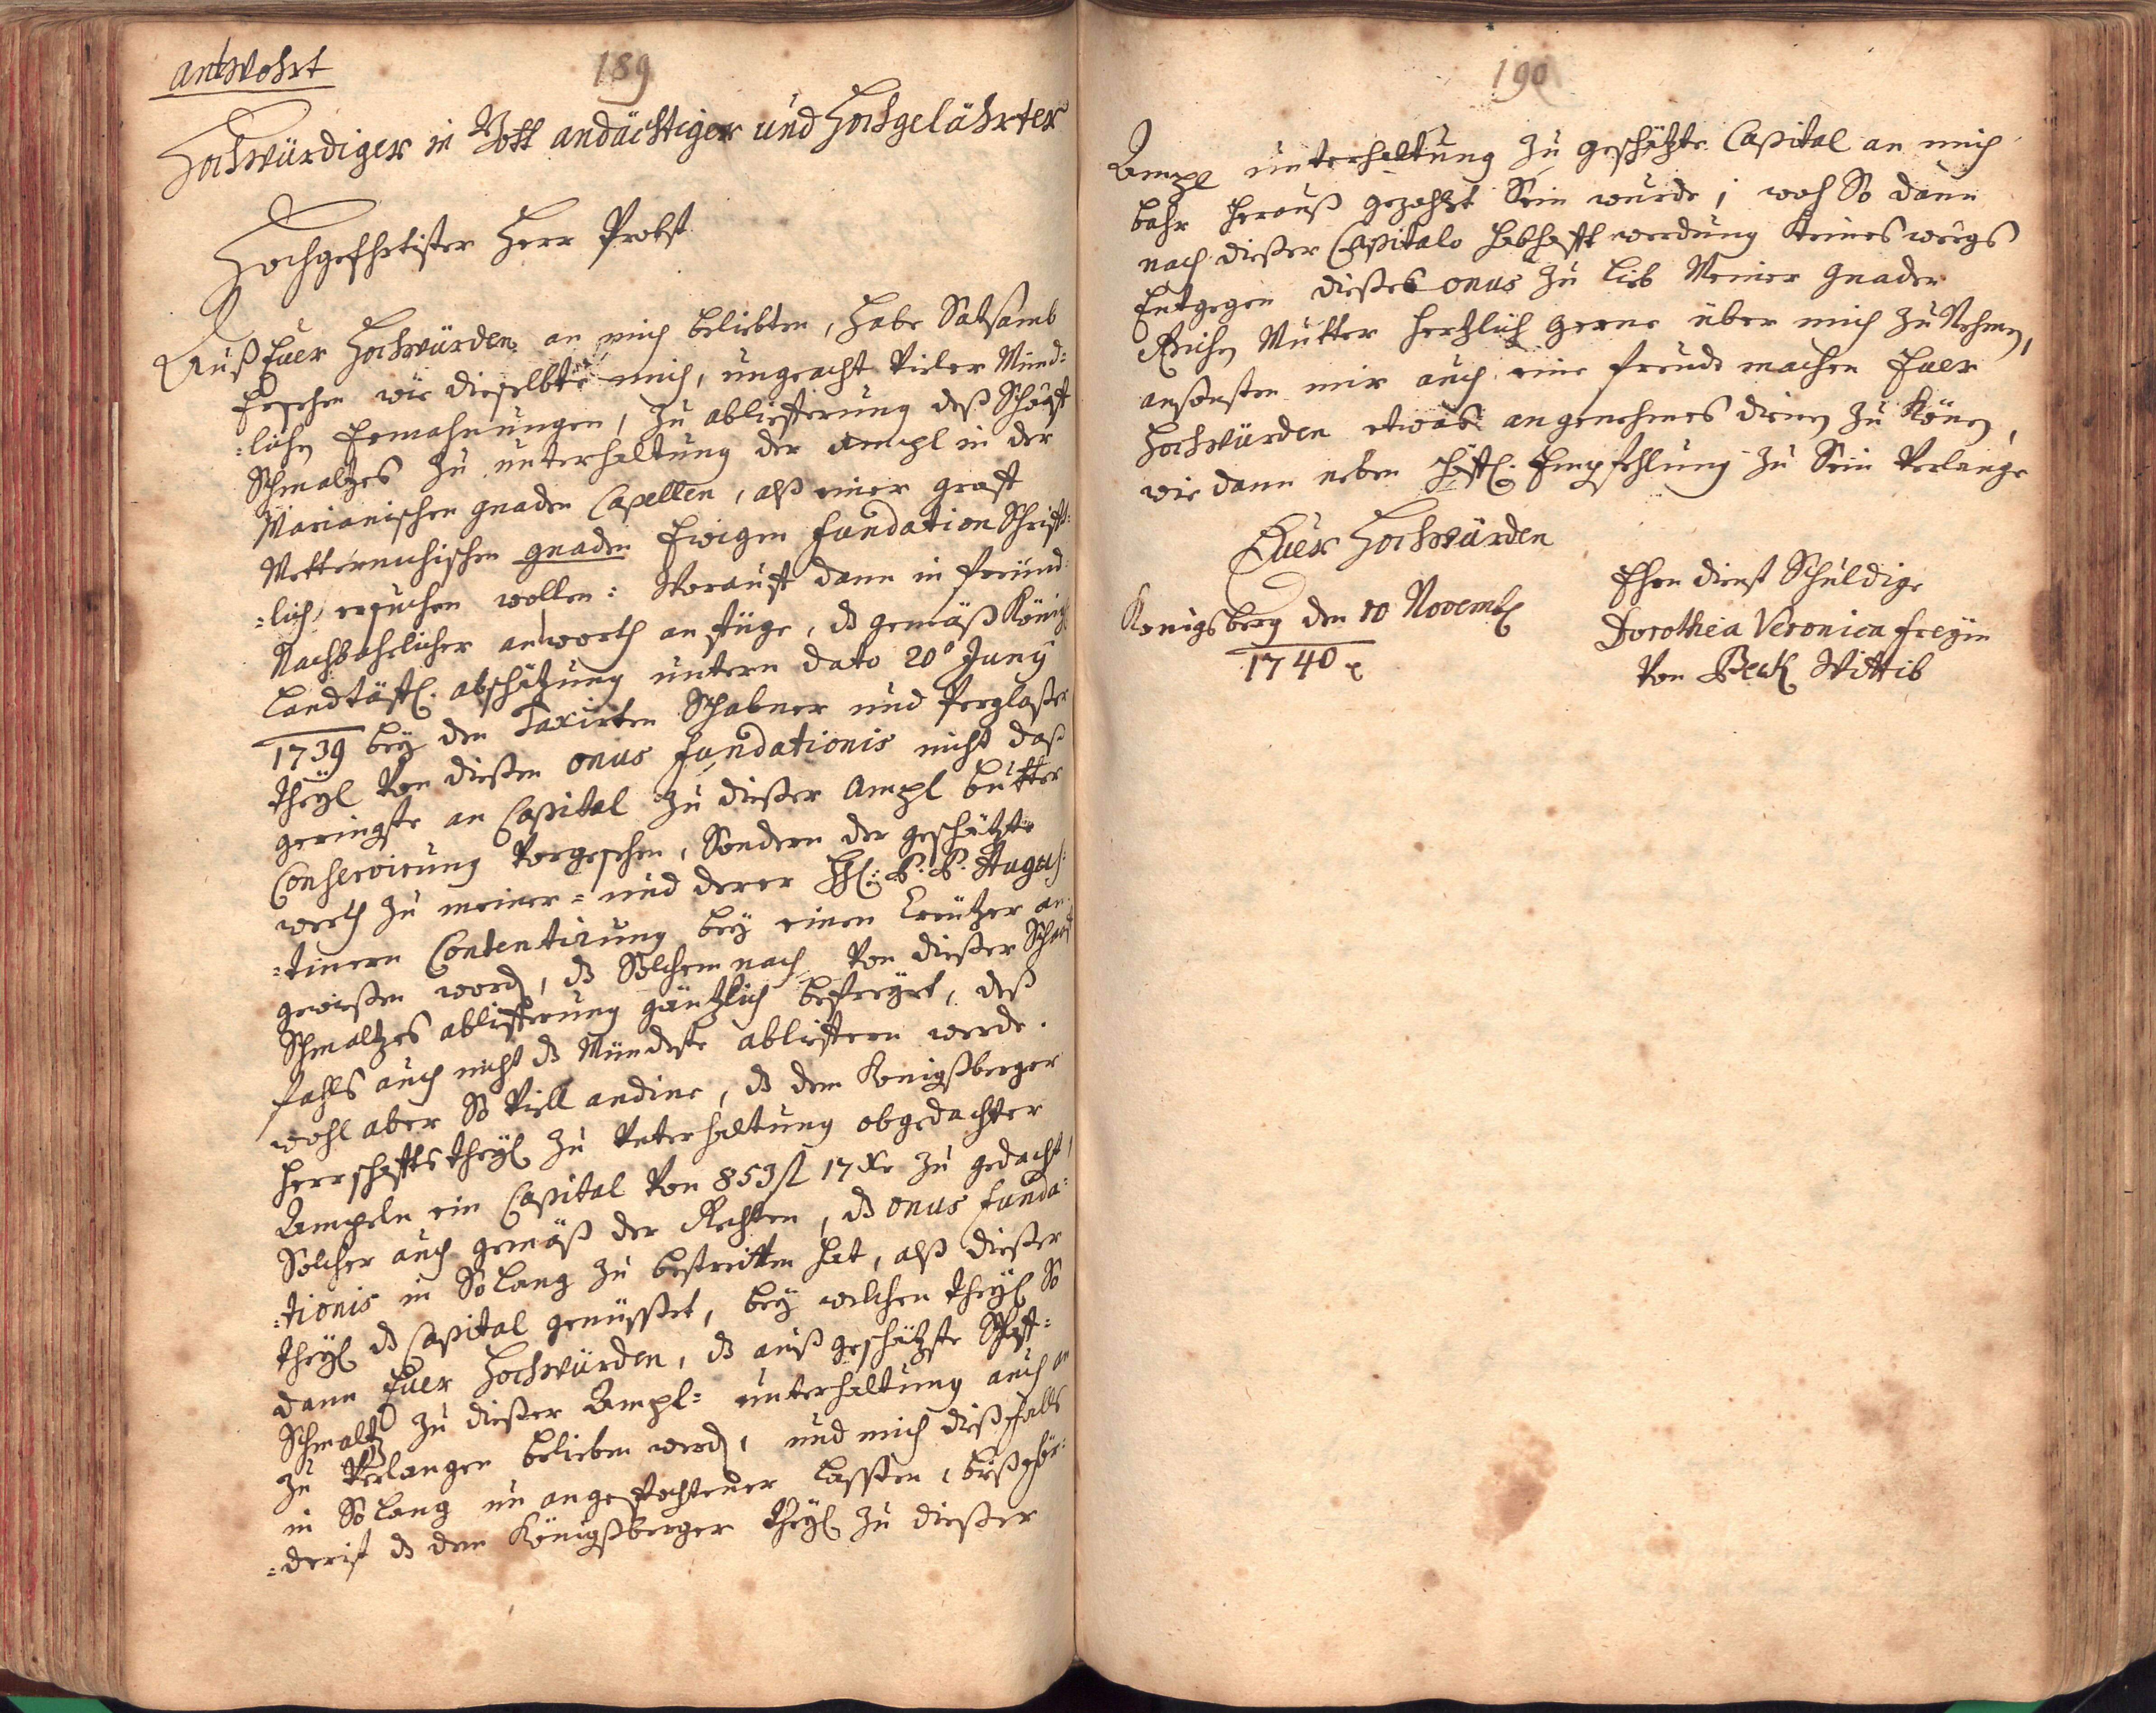 antwohrt
189
Hochwürdiger in Gott andächtiger und Hochgelährter
Hochgeehrtister Herr Probst
Auß Euer Hochwürden an mich beliebten, habe Satsamb
Ersehen wie dieselbte mich, ungeacht vieler Münd=
=lichen Ermahnungen, zu abliefferung deß Schaff
Schmaltzes zu unterhaltung der ampl in der
Marianischen gnaden Capellen, alß einer graff
Metternichischen gnaden Ewigen fundation Schrifft=
=lich ersuchen wollen: Worauff dann in freünd=
Nachbahrlicher antworth anfüge, dß gemäß König
Landtäffl. abschätzung untern dato 20º Juny
1739 bey den Taxirten Schabner und Perglaßer
theyl von dießen onus fundationis nicht daß
geringste an Capital zu dießer Ampl butter
Conservirung vorgesehen, Sondern der geschätzte
werth zu meiner= und derer HH: P. P. Augus=
=tinern Contentirung bey einen Kreützer an=
gewießen word, dß Solchem nach von dießer Schaff
Schmaltzes ablifferung gäntzlich befreyet, deß
fahls auch nicht dß Mündeste abliffern werde.
wohl aber So viell andine, dß dem Konigßberger
Herrschaffts theyl zu Unterhaltung obgedachter
Ampeln ein Capital von 853 fl 17 Xr zu gedacht,
Solcher auch gemäß der Rechten, dß onus funda=
=tionis in So lang zu bestreitten hat, alß dießer
theyl dß Capital genüsset, bey welchen theyl So
dann Euer Hochwürden, dß auß geschätzte Schaff=
Schmaltz zu dießer Ampl= unterhaltung auch an
zu Verlangen belieben werd, und mich dißfalls
in So lang un angefochtener lassen, biß gör=
=derist dß dem Königßberger theyl zu dießer
190
Ampl unterhaltung zu geschätzte Capital an mich
bahr herauß gezahlt Sein wurde, wo So dann
nach dießer Capitals habhafft werdung keines weegs
Entgegen dießes onus zu lieb Meiner Gnaden
Reichen Mutter hertzlich gerne über mich zu Nehmen,
ansonsten mir auch eine freude machen Euer
Hochwürden etwas angenehmes dienen zu Könen,
wie dann neben Empfehlung zu Sein Verlange
Euer Hochwürden
Konigsberg den 10 Novemb
1740
Ehren dienst Schuldige
Dorothea Veronica freyin
Von Beck Wittib